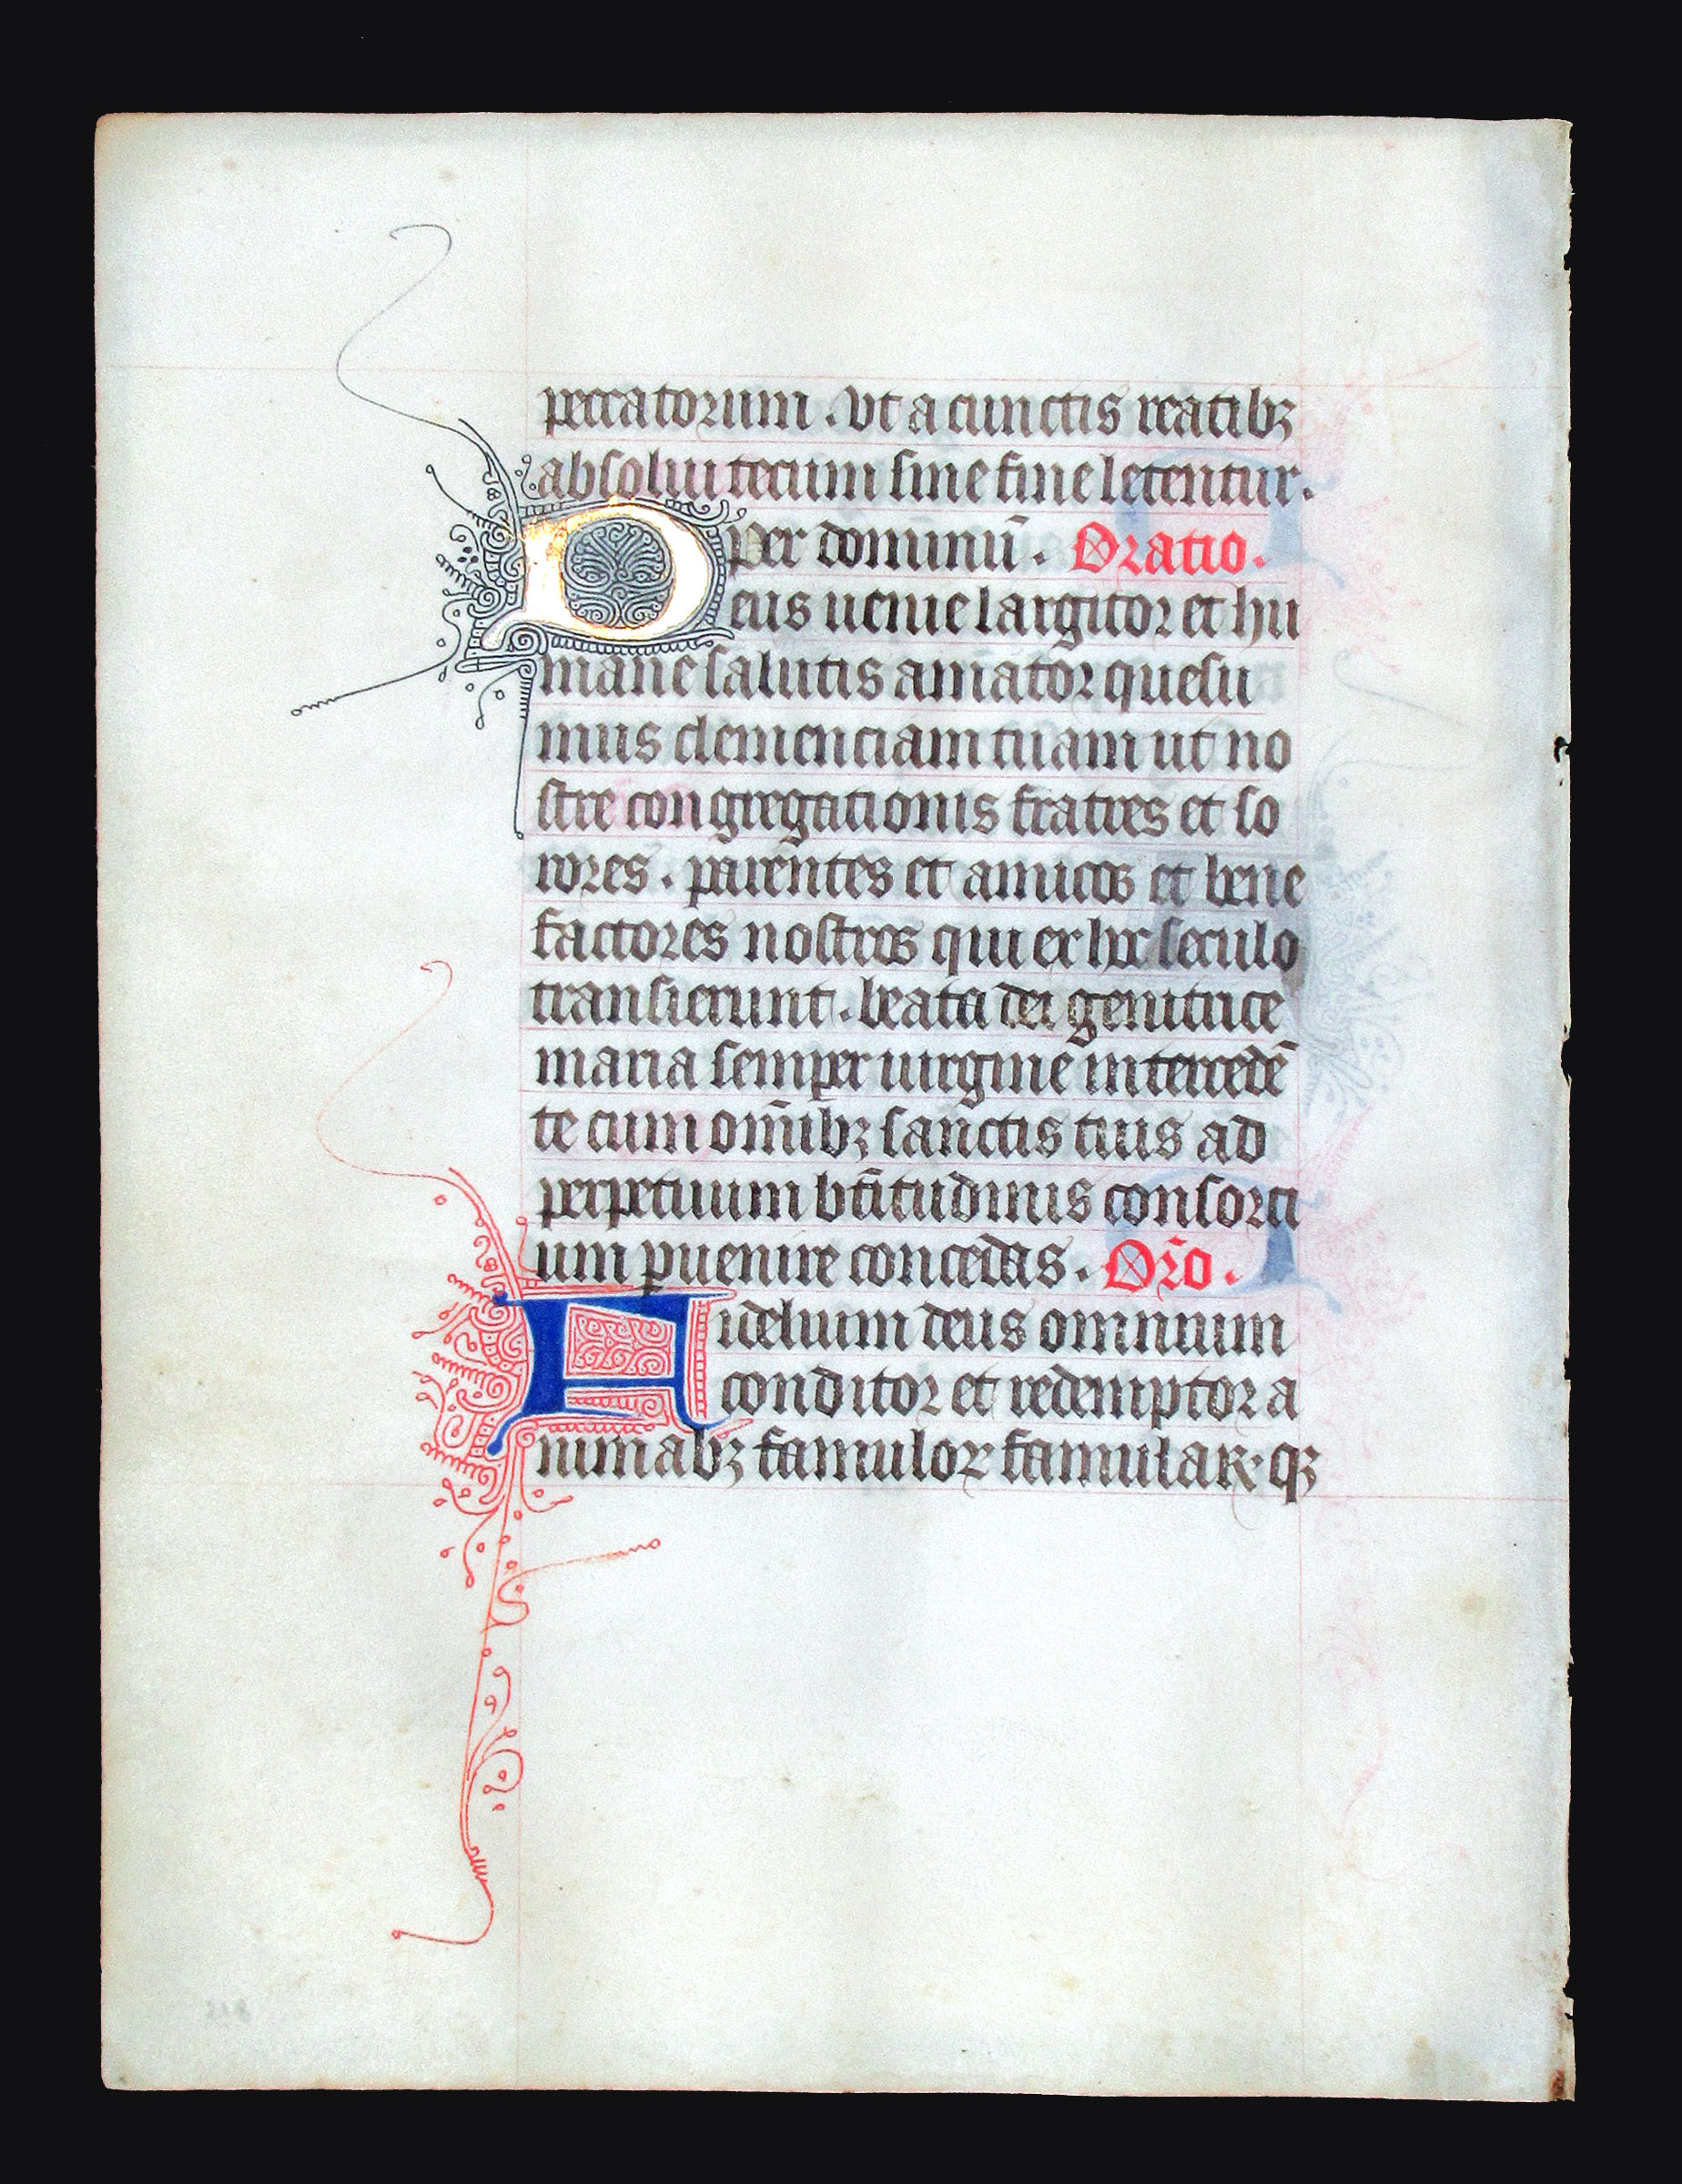 peccatorum . vt a cunctis reatibꝫ
absoluti tecum sine fine letentur.
per dominū . Oratio.
Deus uenie largitor et hu
mane salutis amator quesu
mus clemenciam tuam ut no
stre congregationis fratres et so
rores . parentes et amicos et bene
factores nostros qui ex hoc seculo
transierunt . beata dei genitrice
maria semper uirgine intercedē
te cum om̄ibꝫ sanctis tuis ad
perpetuum bt̄itudinis consorci
um ꝑuenire concedas . Oro̅ .
Fidelium deus omnium
conditor et redemptor a
nimabꝫ famuloꝝ famulaꝝ qꝫ